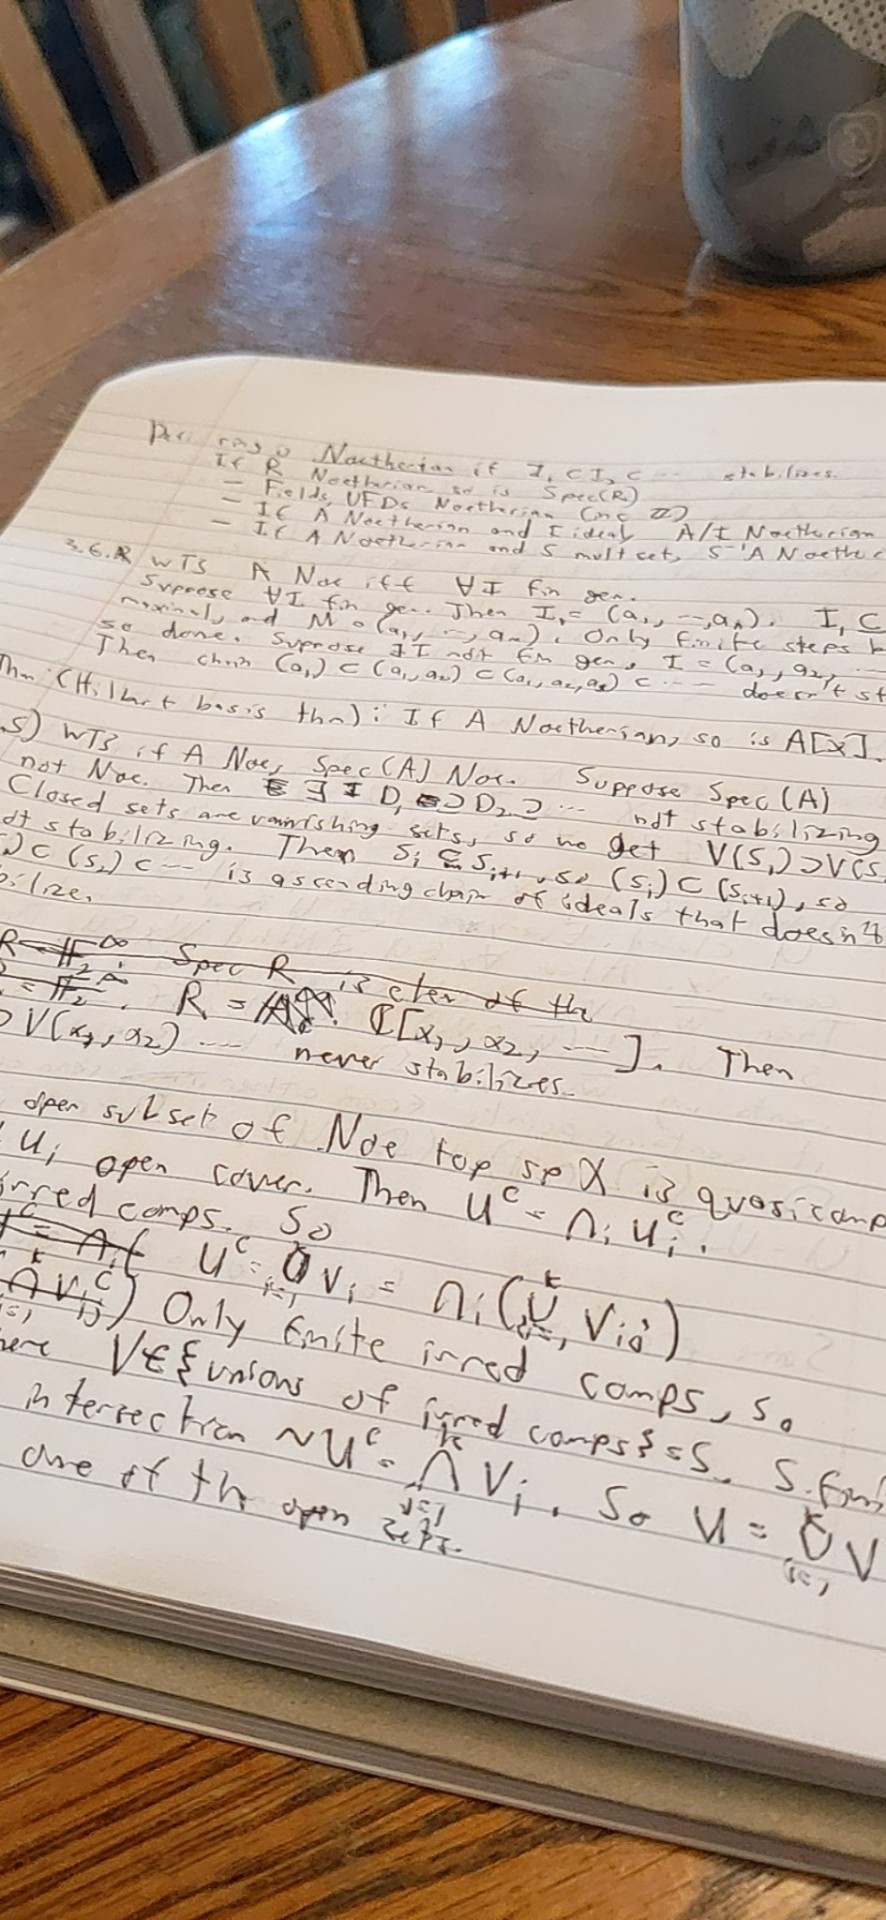 ring is Noetherian if I₁ ⊂ I₂ ⊂ ... stabilizes.
If R Noetherian so is Spec(R)
- Fields, UFDs Noetherian (inc ℤ)
- If A Noetherian and I ideal, A/I Noetherian
- If A Noetherian and S mult set, S⁻¹A Noethe
3.6.R WTS A Noe iff ∀I fin gen.
Suppose ∀I fin gen. Then I₁ = (a₁, ..., aₙ). I₁ ⊆
maximal, and M = (a₁, ..., aₘ). Only finite steps
so done. Suppose ∃I not fin gen, I = (a₁, a₂, ...
Then chain (a₁) ⊂ (a₁, a₂) ⊂ (a₁, a₂, a₃) ⊂ ... doesn't st
Thm (Hilbert basis thm): If A Noetherian, so is A[x].
.S) WTS if A Noe, Spec(A) Noe. Suppose Spec(A)
not Noe. Then ∃ D₁ ⊃ D₂ ⊃ ... not stabilizing
Closed sets are vannishing sets, so we get V(S₁) ⊃ V(S
ot stabilizing. Then Sᵢ ⊆ Sᵢ₊₁, so (Sᵢ) ⊂ (Sᵢ₊₁), so
) ⊂ (S₂) ⊂ ... is ascending chain of ideals that doesn't
bilize.
R = 𝔽₂^∞. Spec R is of the
= 𝔽₂^∞. R = ℂ[x₁, x₂, ...]. Then
⊃ V(x₁, x₂) ... never stabilizes.
open subset of Noe top sp X is quasicomp
Uᵢ open cover. Then Uᶜ = ∩ᵢ Uᵢᶜ.
irred comps. So
Uᶜ = ∪ Vᵢ = ∩ᵢ (∪ Vᵢⱼ)
Only finite irred comps, so
here V ∈ {unions of irred comps} = S. S fini
intersection ~ Uᶜ = ∩ Vᵢ. So U = ∪ V
one of the open sets.